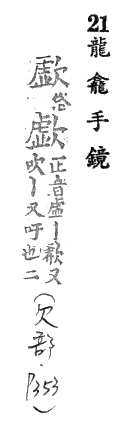 21 龍龕手鏡
俗歔正音虛丨欷又
吹丨又吁也二
(欠部·P353)